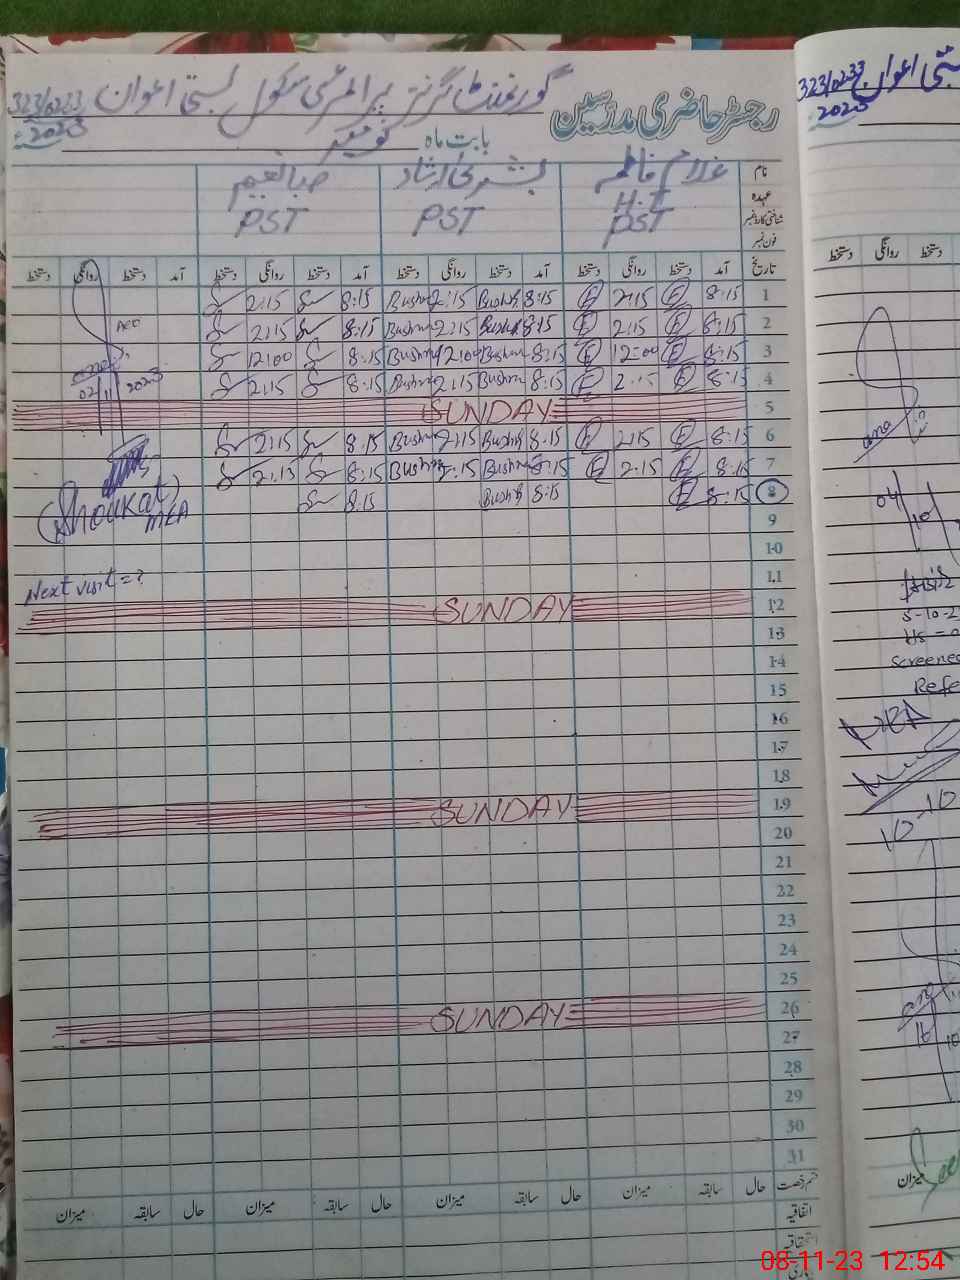 گورنمنٹ گرلز پرائمری سکول بستی اعوان
رجسٹر حاضری مدرسین
بابت ماہ نومبر 2023
نام غلام فاطمہ بشریٰ ارشاد صبا نعیم
عہدہ H.T PST PST
شناختی کارڈ نمبر PST
فون نمبر
تاریخ آمد دستخط روانگی دستخط آمد دستخط روانگی دستخط آمد دستخط روانگی دستخط آمد دستخط روانگی دستخط
1 8:15 2:15 8:15 Bushra 2:15 Bushra 8:15 2:15
2 8:15 2:15 8:15 Bushra 2:15 Bushra 8:15 2:15
3 8:15 12:00 8:15 Bushra 12:00 Bushra 8:15 12:00
4 8:15 2:15 8:15 Bushra 2:15 Bushra 8:15 2:15
5 SUNDAY
6 8:15 2:15 8:15 Bushra 2:15 Bushra 8:15 2:15
7 8:15 2:15 8:15 Bushra 2:15 Bushra 8:15 2:15
8 8:15 8:15 Bushra 8:15
AEO
02/11/2023
(Shoukat)
MEA
9
10
11
Next visit = ?
12 SUNDAY
13
14
15
16
17
18
19 SUNDAY
20
21
22
23
24
25
26 SUNDAY
27
28
29
30
31
قسم رخصت حال سابقہ میزان حال سابقہ میزان حال سابقہ میزان حال سابقہ میزان
اتفاقیہ
استحقاقیہ
بستی اعوان
2023
دستخط روانگی دستخط
04/10
5-10-2
Screened
Refe
MEA
میزان
08-11-23 12:54